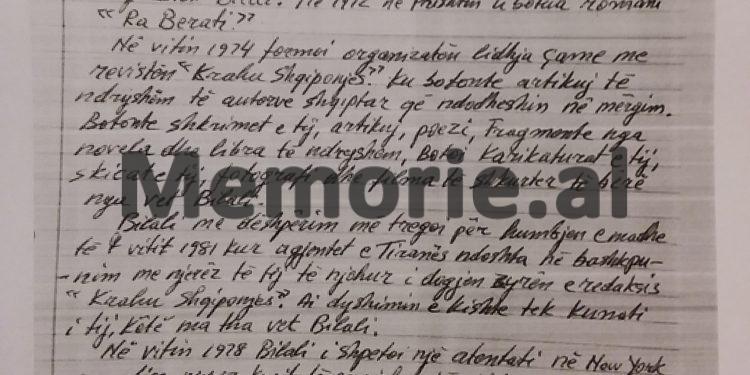 Në 1972 në Prishtin u botua romani
“Ra Berati”?
Në vitin 1974 formoi organizatën lidhja çame me
revistën “Krahu Shqiponjës”? ku botonte artikuj të
ndryshëm të autorve shqiptar që ndodheshin në mërgim.
Botonte shkrimet e tij, artikuj, poezi, Fragmente nga
novela dhe libra të ndryshëm, Botoi Karikaturat e tij,
skicat e tij, fotografi dhe filma të shkurter të bërë
nga vet Bilali.
Memorie.al
Bilali me dëshpërim me tregoi për humbjen e madhe
të vitit 1981 kur agjentet e Tiranës ndoshta në bashkpu-
nim me njerëz të tij të njohur i dogjen zyrën e redaksis
“Krahu Shqiponjes”? Ai dyshimin e kishte tek kunati
i tij, këtë ma tha vet Bilali.
Në vitin 1978 Bilali i shpetoi një atentati në New York